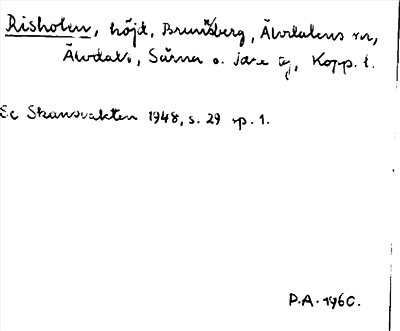 Risholen, höjd, Brunnsberg, Älvdalens sn,
Älvdals, Särna o. Idre tg, Kopp. l.
Se Skansvakten 1948, s. 29 sp. 1.
P.A. 1960.